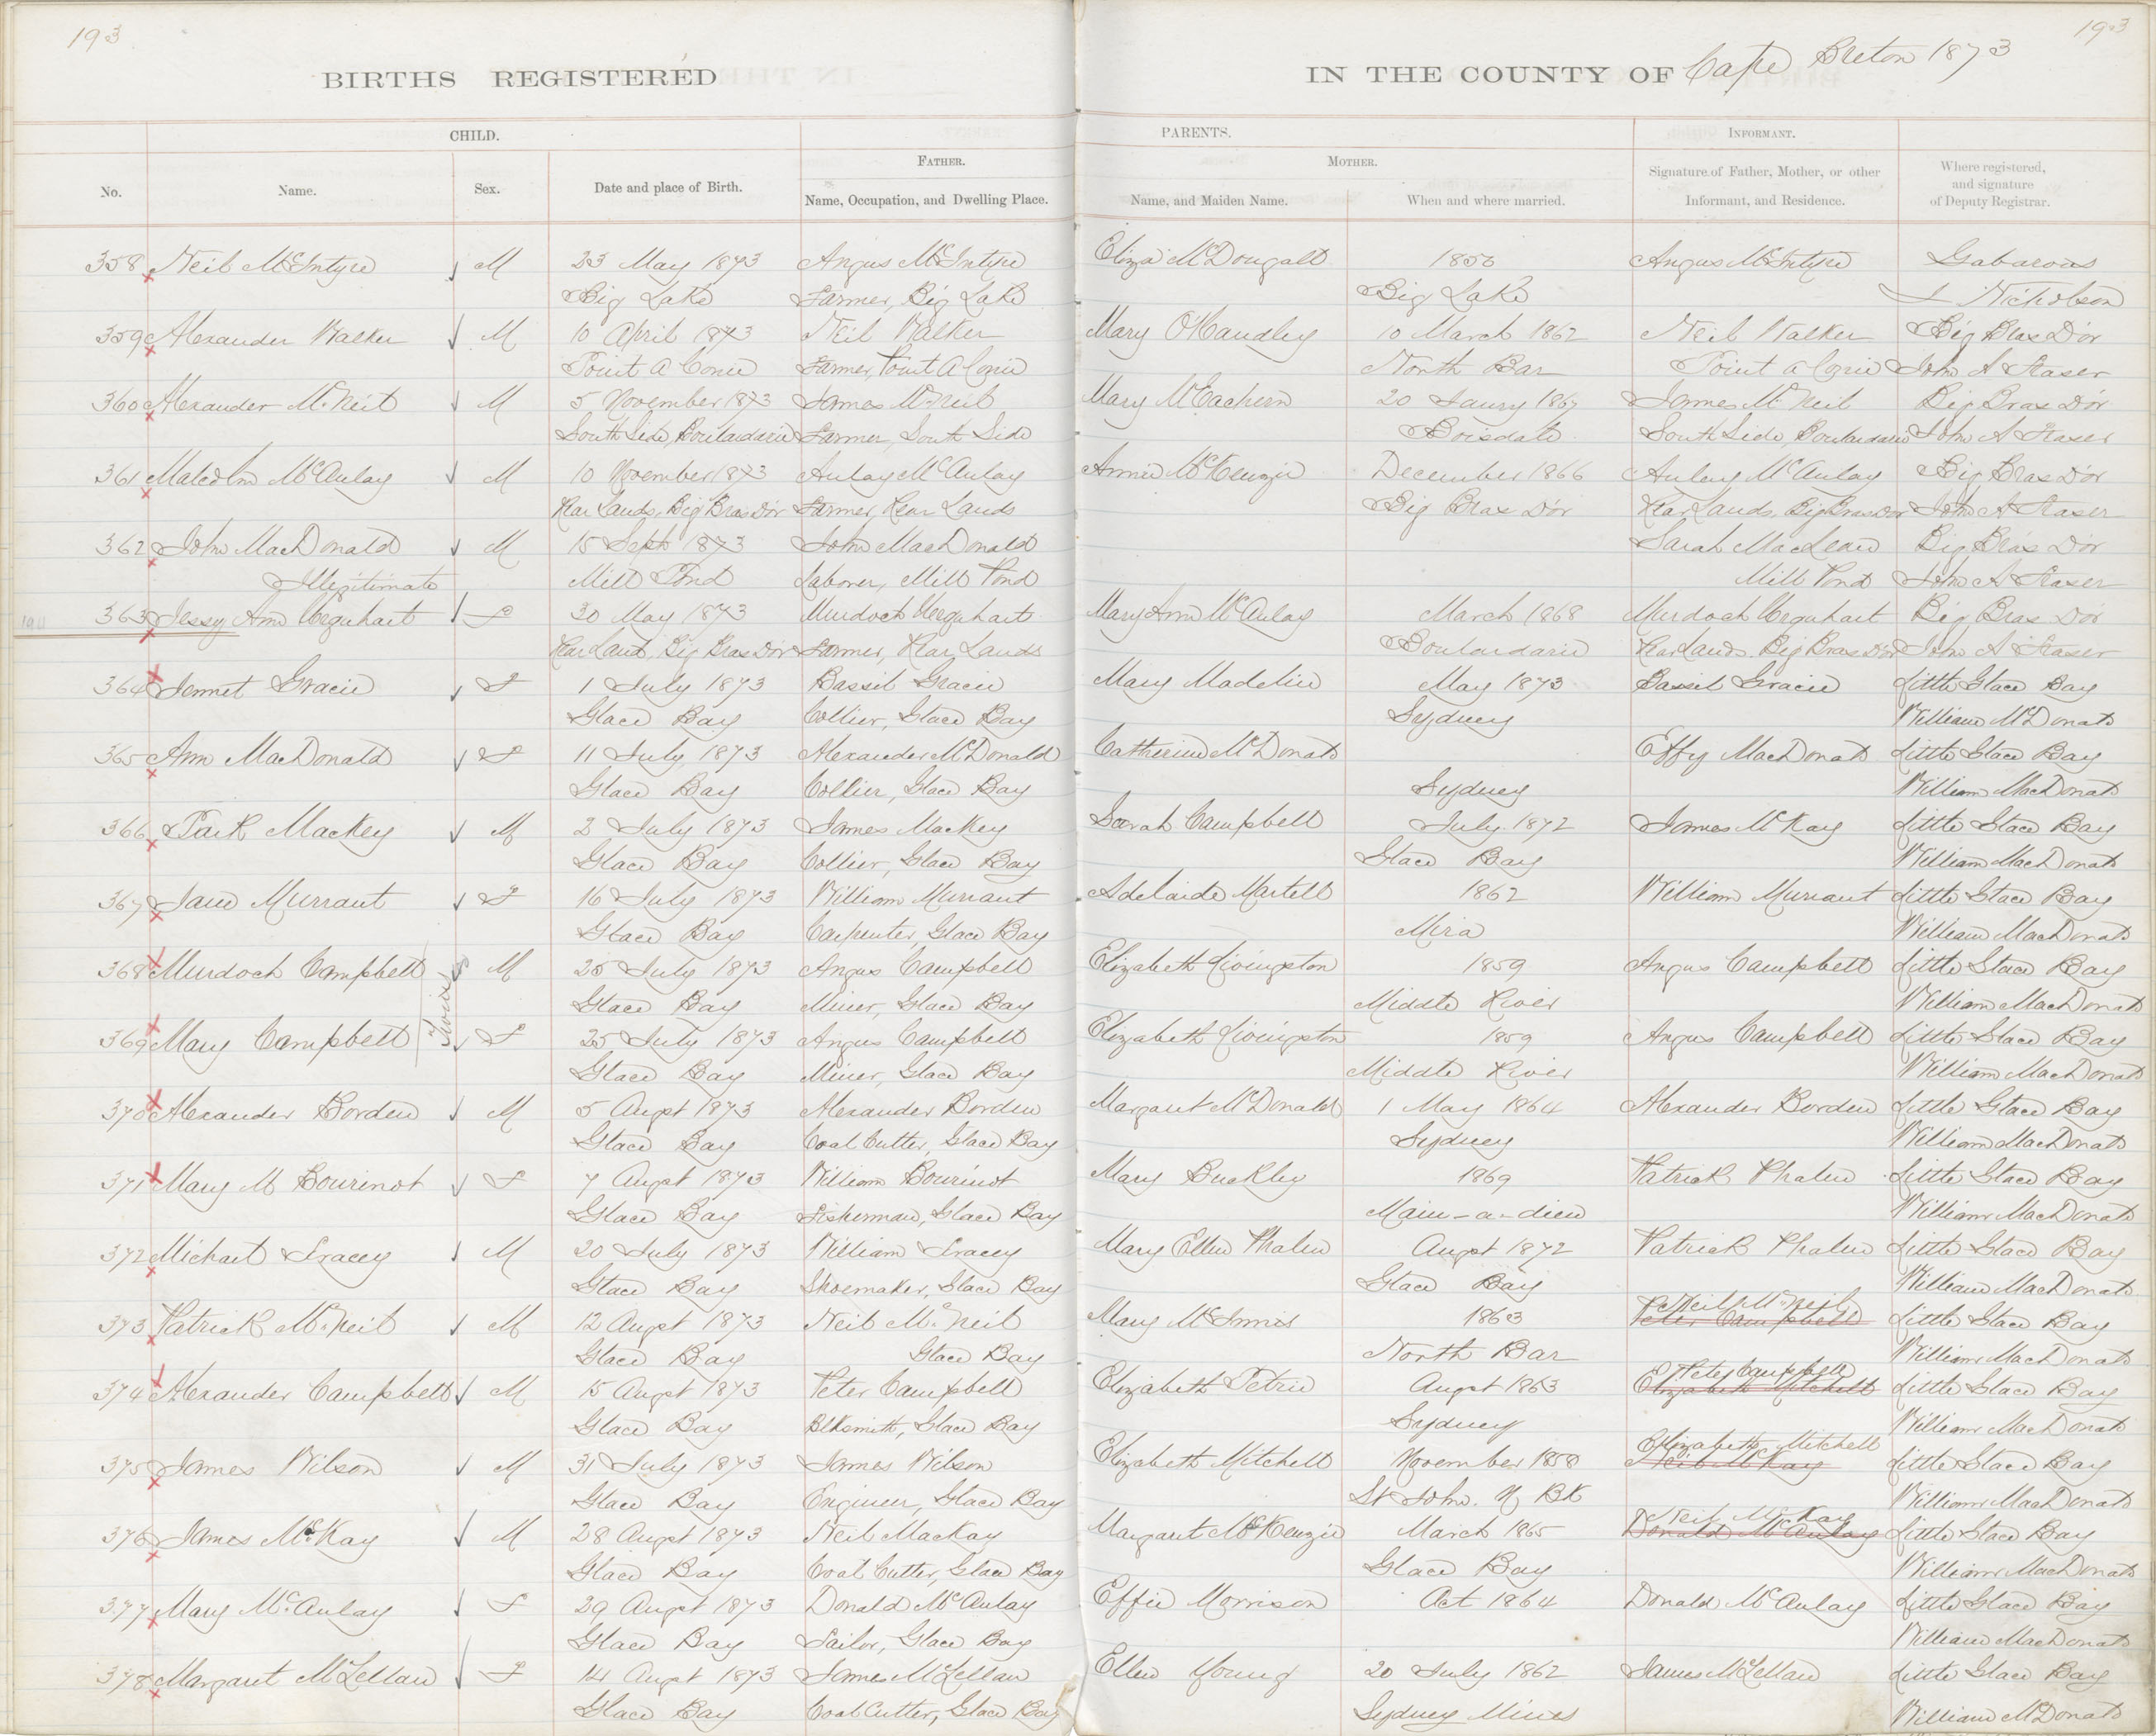 193
193
BIRTHS REGISTERED
IN THE COUNTY OF Cape Breton 1873
CHILD.
PARENTS.
INFORMANT.
FATHER.
MOTHER.
No.
Name.
Sex.
Date and place of Birth.
Name, Occupation, and Dwelling Place.
Name, and Maiden Name.
When and where married.
Signature of Father, Mother, or other
Informant, and Residence.
Where registered,
and signature
of Deputy Registrar.
358 Neil McIntyre M 23 May 1873 Angus McIntyre Eliza McDougall 1856 Angus McIntyre Gabarous
Big Lake Farmer, Big Lake Big Lake Nicholson
359 Alexander Walker M 10 April 1873 Neil Walker Mary O'Handley 10 March 1862 Neil Walker Big Bras D'or
Point A Conie Farmer, Point A Conie North Bar Point a Conie John A Fraser
360 Alexander McNeil M 5 November 1873 James McNeil Mary McEachern 20 Jaury 1867 James McNeil Big Bras D'or
South Side, Boulardarie Farmer, South Side Boisdale South Side, Boulardarie John A Fraser
361 Malcolm McAulay M 10 November 1873 Aulay McAulay Annie McKenzie December 1866 Aulay McAulay Big Bras D'or
Rear Lands, Big Bras D'or Farmer, Rear Lands Big Bras D'or Rear Lands, Big Bras D'or John A Fraser
362 John MacDonald M 15 Sept 1873 John MacDonald Sarah MacLean Big Bras D'or
Illegitimate Mill Pond Laborer, Mill Pond Mill Pond John A Fraser
363 Jessy Ann Urquhart F 30 May 1873 Murdoch Urquhart Mary Ann McAulay March 1868 Murdoch Urquhart Big Bras D'or
Rear Land, Big Bras D'or Farmer, Rear Lands Boulardarie Rear Lands Big Bras D'or John A Fraser
364 Jennet Gracie F 1 July 1873 Bassil Gracie Mary Madeline May 1873 Bassil Gracie Little Glace Bay
Glace Bay Collier, Glace Bay Sydney William McDonald
365 Ann MacDonald F 11 July 1873 Alexander McDonald Catherine McDonald Effy MacDonald Little Glace Bay
Glace Bay Collier, Glace Bay Sydney William MacDonald
366 Park Mackey M 2 July 1873 James Mackey Sarah Campbell July 1872 James McKay Little Glace Bay
Glace Bay Collier, Glace Bay Glace Bay William MacDonald
367 Jane Murrant F 16 July 1873 William Murrant Adelaide Martell 1862 William Murrant Little Glace Bay
Glace Bay Carpenter, Glace Bay Mira William MacDonald
368 Murdoch Campbell M 25 July 1873 Angus Campbell Elizabeth Livingston 1859 Angus Campbell Little Glace Bay
Twins
Glace Bay Miner, Glace Bay Middle River William MacDonald
369 Mary Campbell F 25 July 1873 Angus Campbell Elizabeth Livingston 1859 Angus Campbell Little Glace Bay
Glace Bay Miner, Glace Bay Middle River William MacDonald
370 Alexander Borden M 5 Augst 1873 Alexander Borden Margaret McDonald 1 May 1864 Alexander Borden Little Glace Bay
Glace Bay Coal Cutter, Glace Bay Sydney William MacDonald
371 Mary M Bourinot F 7 Augst 1873 William Bourinot Mary Buckley 1869 Patrick Phalen Little Glace Bay
Glace Bay Fisherman, Glace Bay Main-a-dieu William MacDonald
372 Michael Tracey M 20 July 1873 William Tracey Mary Ellen Phalen Augst 1872 Patrick Phalen Little Glace Bay
Glace Bay Shoemaker, Glace Bay Glace Bay William MacDonald
Neil McNeil
373 Patrick McNeil M 12 Augst 1873 Neil McNeil Mary McInnis 1863 Peter Campbell Little Glace Bay
Glace Bay Glace Bay North Bar William MacDonald
Peter Campbell
374 Alexander Campbell M 15 Augst 1873 Peter Campbell Elizabeth Petrie Augst 1863 Elizabeth Mitchell Little Glace Bay
Glace Bay Blksmith, Glace Bay Sydney William MacDonald
Elizabeth Mitchell
375 James Wilson M 31 July 1873 James Wilson Elizabeth Mitchell November 1858 Neil McKay Little Glace Bay
Glace Bay Engineer, Glace Bay St John. N BK William MacDonald
Neil McKay
376 James McKay M 28 Augst 1873 Neil MacKay Margaret McKenzie March 1865 Donald McAulay Little Glace Bay
Glace Bay Coal Cutter, Glace Bay Glace Bay William MacDonald
377 Mary McAulay F 29 Augst 1873 Donald McAulay Effie Morrison Oct 1864 Donald McAulay Little Glace Bay
Glace Bay Sailor, Glace Bay William MacDonald
378 Margaret McLellan F 14 Augst 1873 James McLellan Ellen Young 20 July 1862 James McLellan Little Glace Bay
Glace Bay Coal Cutter, Glace Bay Sydney Mines William McDonald